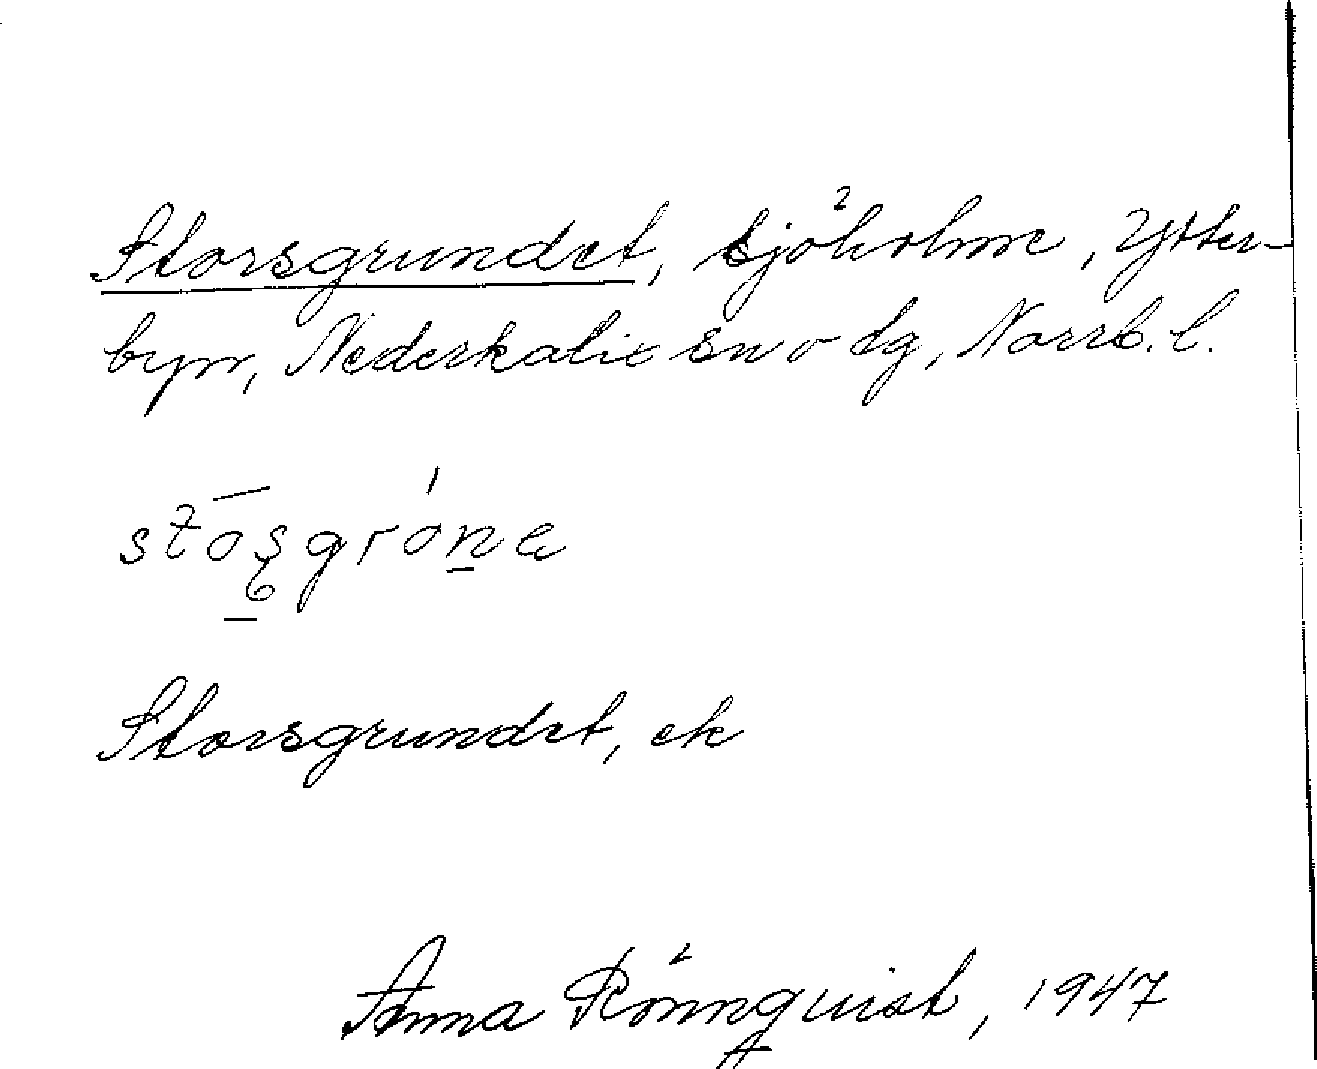 Storsgrundet, sjöholme, Ytter-
byn, Nederkalix sn o dg, Norrb. l.
Storsgrundet, ek
Anna Rönnquist, 1947